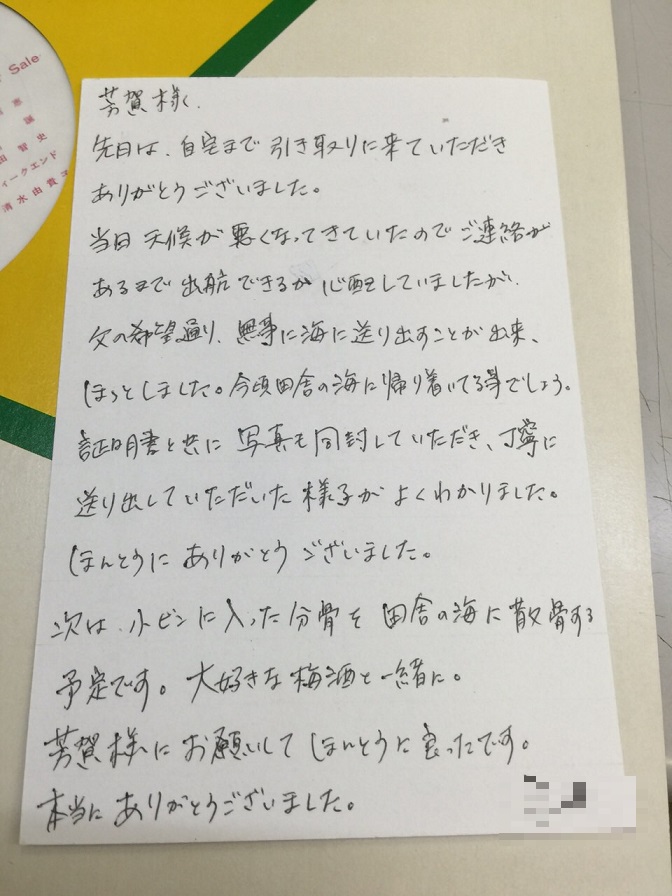 Sale
恵
誠
田智史
ィークエンド
清水由貴子
芳賀様く.
先日は、自宅まで引き取りに来ていただき
ありがとうございました。
当日天候が悪くなってきていたのでご連絡が
あるまで出航できるか心配していましたが、
父の希望通り、無事に海に送り出すことが出来、
ほっとしました。今頃田舎の海に帰り着いてる事でしょう。
証明書と共に写真も同封していただき、丁寧に
送り出していただいた様子がよくわかりました。
ほんとうにありがとうございました。
次は、小ビンに入った分骨を田舎の海に散骨する
予定です。大好きな梅酒と一緒に。
芳賀様にお願いしてほんとうに良ったです。
本当にありがとうございました。